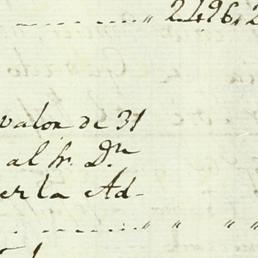 ......." 2496,2
valor de 31
al Sr. Dn
er la Ad-
....... " " "